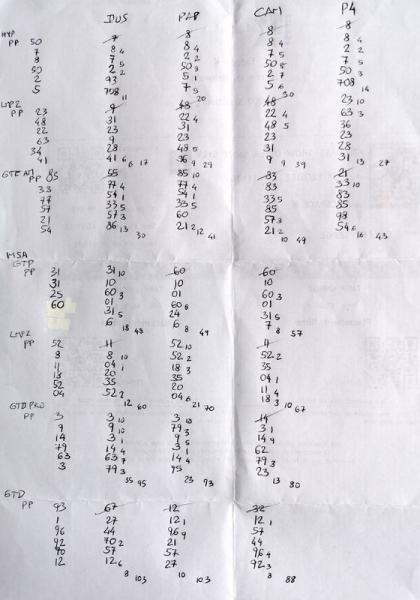 DUS PAP CAM P4
HYP 7 8 8 8
PP 50 8 4 8 4 8 4 8 4
7 7 5 2 2 7 5 2 2
8 2 2 50 3 50 8 7 5
50 93 5 1 2 7 50 3
2 708 7 5 5 6 708
5 11 20 30 14
LMP2 9 48 48 23 10
PP 23 31 22 4 22 4 63 3
48 23 31 48 5 36
22 9 23 23 23
63 28 48 5 31 28
34 41 6 6 17 36 9 29 9 9 39 31 13 27
41
GTE AM 55 85 10 33 21
PP 85 77 4 77 4 83 33 10
33 54 1 54 1 33 5 83
77 33 5 33 5 85 85
57 57 3 60 57 3 98
21 86 13 21 2 12 21 2 54 6
54 30 41 10 49 16 43
MSA
GTP
PP 31 31 10 60 60
31 10 10 10
25 60 3 01 60 3
60 01 60 8 01
31 5 24 31 5
6 18 48 6 8 49 7 8 57
LMP2
PP 52 11 52 10 11
8 8 10 52 2 52 2
11 04 1 18 3 35
18 20 35 04 1
52 35 20 11 4
04 52 2 04 6 18 3
12 60 21 70 10 67
GTD PRO
PP 3 3 10 3 10 14
9 9 10 79 3 3 1
14 3 1 9 5 14 9
79 14 4 3 1 62
63 63 7 14 4 79 3
3 79 3 95 23
35 95 23 93 13 80
GTD
PP 93 67 12 32
1 27 12 1 12 1
96 44 96 9 57
92 70 2 21 44
70 57 57 96 4
12 12 6 27 92 3
8 103 10 103 8 88